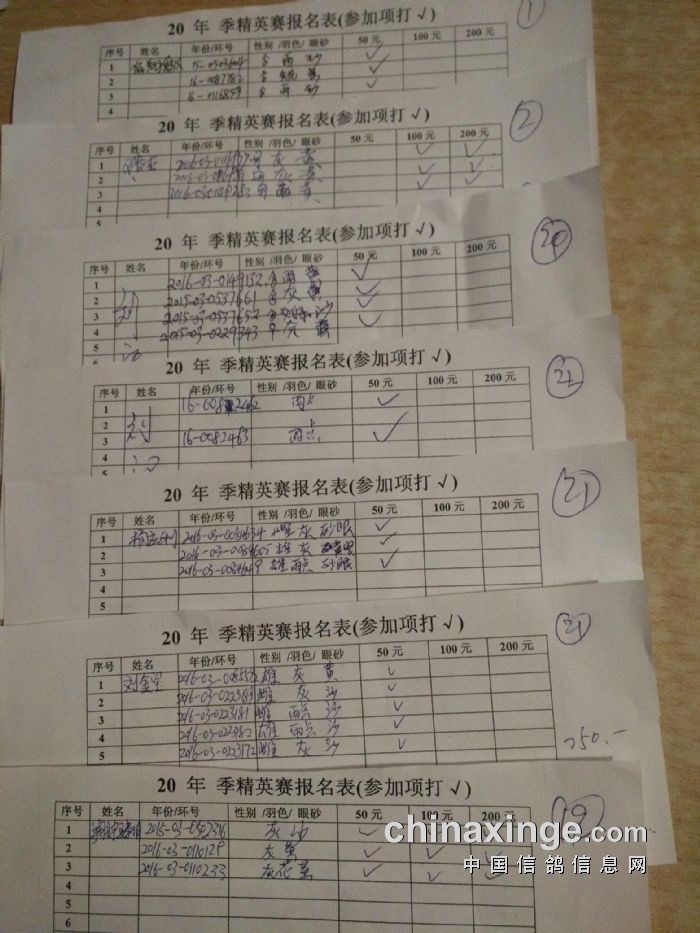 20 年 季精英赛报名表(参加项打 √) ①
序号 姓名 年份/环号 性别 /羽色/ 眼砂 50 元 100 元 200 元
1 15-0503604 雨 沙 √
2 16-0087782 黄 √
3 16-0116859 雨 砂 √
4
20 年 季精英赛报名表(参加项打 √) ②
序号 姓名 年份/环号 性别 /羽色/ 眼砂 50 元 100 元 200 元
1 灰 黄 √ √
2 灰 黄 √ √
3 黄 √ √
4
5
20 年 季精英赛报名表(参加项打 √) 20
序号 姓名 年份/环号 性别 /羽色/ 眼砂 50 元 100 元 200 元
1 2016-03-0149152 雨 黄 √
2 刘 2015-03-0537661 灰 黄 √
3 2015-03-0537652 沙 √
4 2015-03-0229343 灰 黄 √
5
20 年 季精英赛报名表(参加项打 √) 22
序号 姓名 年份/环号 性别 /羽色/ 眼砂 50 元 100 元 200 元
1 雨点 √
2 刘
3 16-0082463 雨点 √
4
5
20 年 季精英赛报名表(参加项打 √) 21
序号 姓名 年份/环号 性别 /羽色/ 眼砂 50 元 100 元 200 元
1 雄 灰 砂眼 √
2 雄 灰 黄眼 √
3 雄 雨点 砂眼 √
4
5
20 年 季精英赛报名表(参加项打 √) 21
序号 姓名 年份/环号 性别 /羽色/ 眼砂 50 元 100 元 200 元
1 刘金宝 雄 灰 黄 √
2 雌 灰 沙 √
3 2016-03-0223181 雌 雨点 沙 √
4 2016-03-0223182 雄 雨点 沙 √
5 2016-03-0223172 雌 灰 沙 √ 250.-
20 年 季精英赛报名表(参加项打 √) 19
序号 姓名 年份/环号 性别 /羽色/ 眼砂 50 元 100 元 200 元
1 2015-03-0502316 灰 沙 √
2 2016-03-0110129 灰 黄 √ √ √
3 2016-03-0110233 灰花 黄 √ √ √
4
5
6
chinaxinge.com
中国信鸽信息网